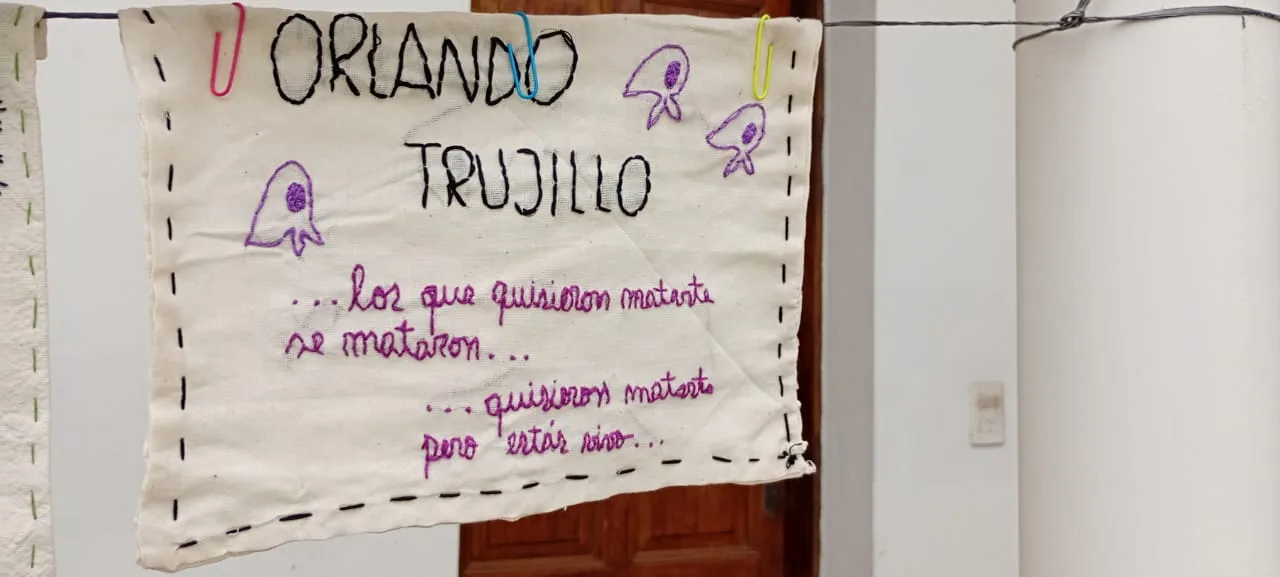 ORLANDO
TRUJILLO
...los que quisieron matarte
se mataron...
...quisieron matarte
pero estás vivo...